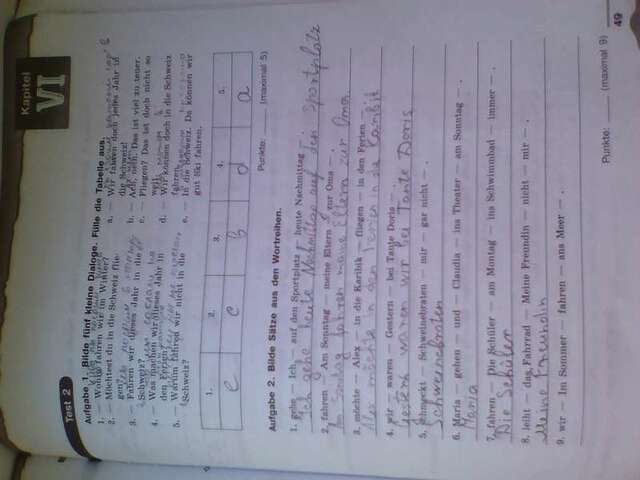 Kapitel
VI
Test 2
Aufgabe 1. Bilde fünf kleine Dialoge. Fülle die Tabelle aus.
1. – Wohin fahren wir im Winter?
2. – Möchtest du in die Schweiz fliegen?
3. – Fahren wir dieses Jahr in die Schweiz?
4. – Was machen wir dieses Jahr in den Ferien?
5. – Warum fahren wir nicht in die Schweiz?
a. – Wir fahren doch jedes Jahr in die Schweiz!
b. – Ach, nein. Das ist viel zu teuer.
c. – Fliegen? Das ist doch nicht so weit.
d. – Wir können doch in die Schweiz fahren.
e. – In die Schweiz. Da können wir gut Ski fahren.
1. 2. 3. 4. 5.
e c b d a
Punkte: (maximal 5)
Aufgabe 2. Bilde Sätze aus den Wortreihen.
1. gehe – Ich – auf den Sportplatz – heute Nachmittag – .
Ich gehe heute Nachmittag auf den Sportplatz
2. fahren – Am Sonntag – meine Eltern – zur Oma – .
Am Sonntag fahren meine Eltern zur Oma
3. möchte – Alex – in die Karibik – fliegen – in den Ferien – .
Alex möchte in den Ferien in die Karibik
4. wir – waren – Gestern – bei Tante Doris – .
Gestern waren wir bei Tante Doris
5. schmeckt – Schweinebraten – mir – gar nicht – .
Schweinebraten
6. Maria – gehen – und – Claudia – ins Theater – am Sonntag – .
Maria
7. fahren – Die Schüler – am Montag – ins Schwimmbad – immer – .
Die Schüler
8. leiht – das Fahrrad – Meine Freundin – nicht – mir – .
Meine Freundin
9. wir – Im Sommer – fahren – ans Meer – .
Punkte: (maximal 9)
49